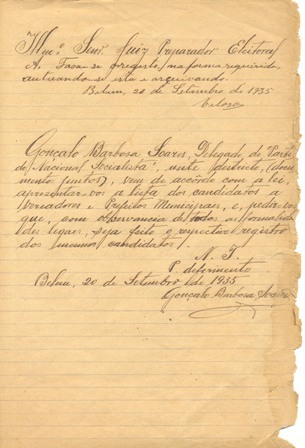 Illmº. Snr. Juiz Preparador Eleitoral
A. Faça-se o registo, na forma requerida,
autuando-se esta e archivando.
Belem, 20 de Setembro de 1935
Gonçalo Barbosa Soares, Delegado do Parti-
do "Nacional Socialista", neste districto, (docu-
mento junto), vem de accôrdo com a lei,
apresentar-vos a lista dos candidatos a
Vereadores e Prefeitos Municipaes, e, pede-vos
que, com observancia de todos as formalida-
des legaes, seja feito o respectivo registro
dos mesmos candidatos.
N. T.
P. deferimento
Belem, 20 de Setembro de 1935
Gonçalo Barbosa Soares